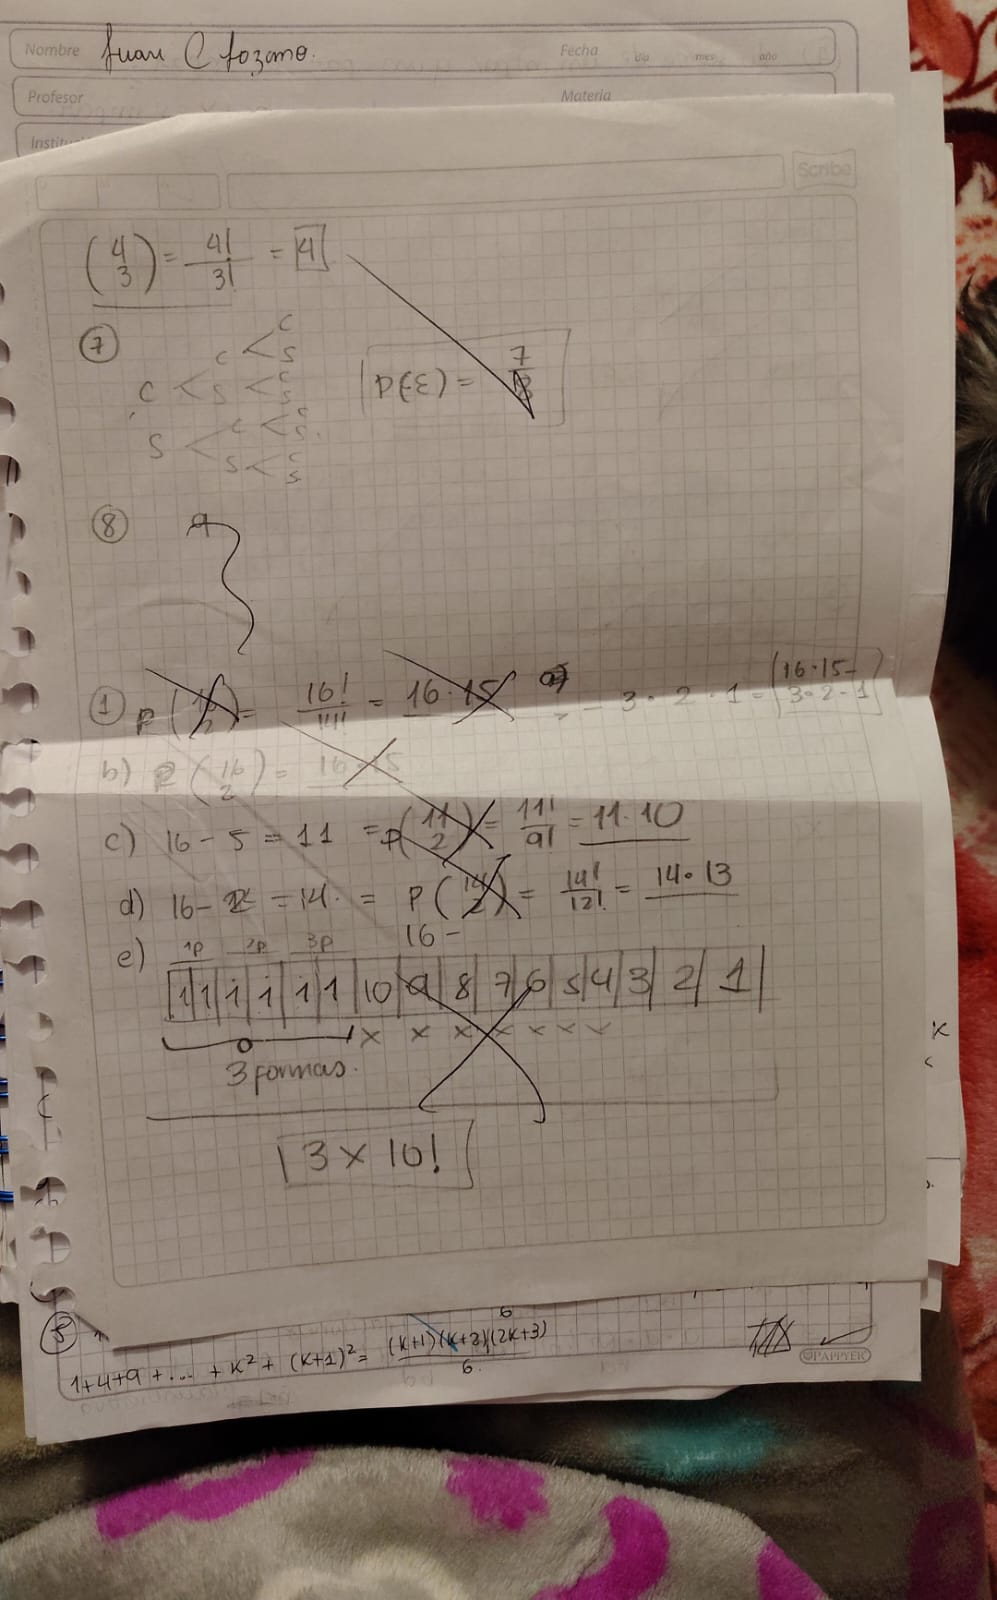 Nombre Juan C Lozano.
Fecha
día mes año
Profesor
Materia
Scribe
(4 3) = 4!/3! = 4
7
C < C < C S
S < C S
P(E) = 7/8
S < C < C S
S < C S
8
1 P(16 2) = 16!/14! = 16·15
3·2·1 = 16·15- 3·2·1
b) P(16 2) = 16·15
c) 16 - 5 = 11 = P(11 2) = 11!/9! = 11·10
d) 16 - 2 = 14 = P(14 2) = 14!/12! = 14·13
16 -
e) 1P 2P 3P
1 1 1 1 1 1 10 9 8 7 6 5 4 3 2 1
x x x x x x x
3 formas.
3 x 10!
6
5
1+4+9+...+k²+(k+1)² = (k+1)(k+2)(2k+3)/6.
PAPPYER